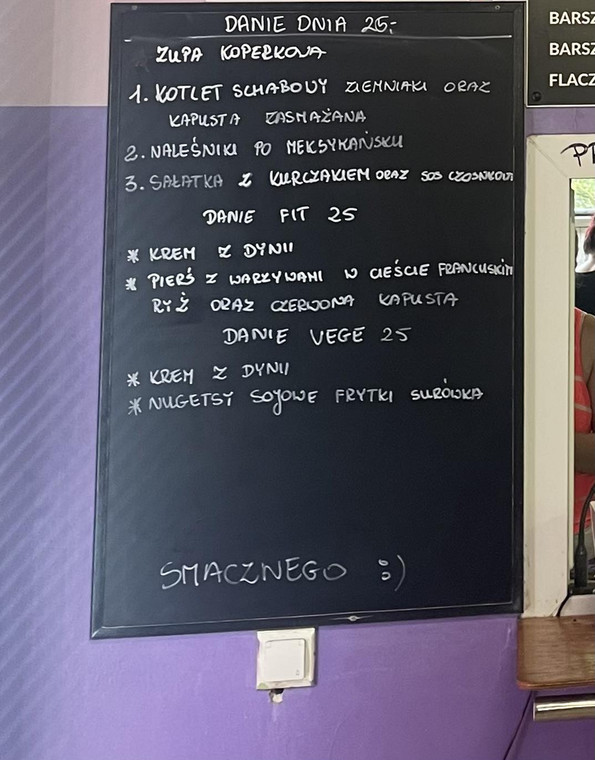 DANIE DNIA 25.-
ZUPA KOPERKOWA
1. KOTLET SCHABOWY ZIEMNIAKI ORAZ
KAPUSTA ZASMAŻANA
2. NALEŚNIKI PO MEKSYKAŃSKU
3. SAŁATKA Z KURCZAKIEM ORAZ SOS CZOSNKOWY
DANIE FIT 25
* KREM Z DYNII
* PIERŚ Z WARZYWAMI W CIEŚCIE FRANCUSKIM
RYŻ ORAZ CZERWONA KAPUSTA
DANIE VEGE 25
* KREM Z DYNII
* NUGETSY SOJOWE FRYTKI SURÓWKA
SMACZNEGO :)
BARSZ
BARSZ
FLACZ